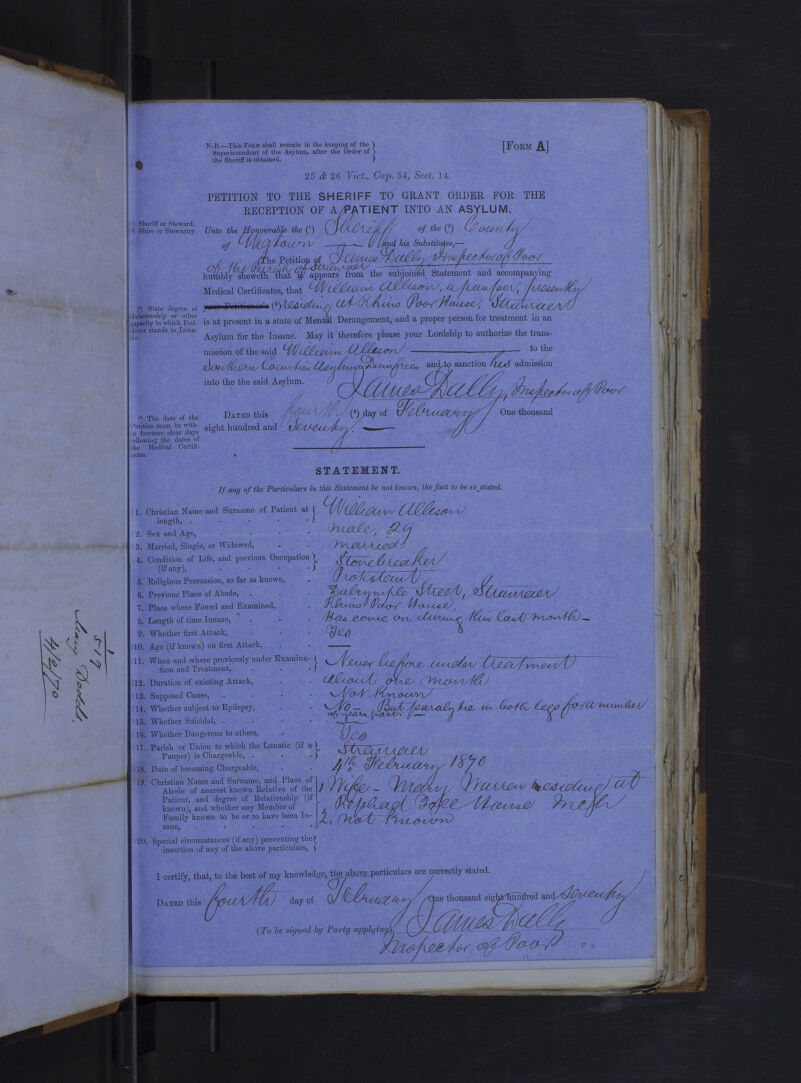 N.B.—This Form shall remain in the keeping of the
Superintendent of the Asylum, after the Order of
the Sheriff is obtained.
[Form A]
25 & 26 Vict., Cap. 54, Sect. 14.
PETITION TO THE SHERIFF TO GRANT ORDER FOR THE
RECEPTION OF A PATIENT INTO AN ASYLUM.
(1) Sheriff or Steward.
(2) Shire or Stewartry.
Unto the Honourable the (1) Sheriff of the (2) County
of Wigtown — and his Substitutes,—
The Petition of James Dally Inspector of Poor
of the Parish of Stranraer
humbly sheweth that it appears from the subjoined Statement and accompanying
Medical Certificates, that William Allison, a pauper, presently
your Petitioner's (3) residing at Rhins Poor House, Stranraer
(3) State degree of
Relationship or other
capacity in which Peti-
tioner stands to Luna-
tic.
is at present in a state of Mental Derangement, and a proper person for treatment in an
Asylum for the Insane. May it therefore please your Lordship to authorize the trans-
mission of the said William Allison — to the
Southern Counties Asylum, Dumfries and to sanction his admission
into the the said Asylum.
James Dally, Inspector of Poor
(4) The date of the
Petition must be with-
in fourteen clear days
following the dates of
the Medical Certifi-
cates.
Dated this fourth (4) day of February One thousand
eight hundred and Seventy. —
STATEMENT.
If any of the Particulars in this Statement be not known, the fact to be so stated.
1. Christian Name and Surname of Patient at length, William Allison
2. Sex and Age, male, 29
3. Married, Single, or Widowed, married
4. Condition of Life, and previous Occupation (if any), Stonebreaker
5. Religious Persuasion, so far as known, Protestant
6. Previous Place of Abode, Dalrymple Street, Stranraer
7. Place where Found and Examined, Rhins Poor House.
8. Length of time Insane, Has come on during this last month —
9. Whether first Attack, Yes
10. Age (if known) on first Attack, —
11. When and where previously under Examina-
tion and Treatment, Never before under treatment
12. Duration of existing Attack, about one month
13. Supposed Cause, Not Known
14. Whether subject to Epilepsy, No — But paralytic in both legs for a number
of years past. —
15. Whether Suicidal, —
16. Whether Dangerous to others, Yes
17. Parish or Union to which the Lunatic (if a
Pauper) is Chargeable, Stranraer
18. Date of becoming Chargeable, 4th February 1870
19. Christian Name and Surname, and Place of
Abode of nearest known Relative of the
Patient, and degree of Relationship (if
known), and whether any Member of
Family known to be or to have been In-
sane,
1, Wife - Mary Warren residing at
Toll House
2, not Known
20. Special circumstances (if any) preventing the
insertion of any of the above particulars,
I certify, that, to the best of my knowledge, the above particulars are correctly stated.
Dated this fourth day of February One thousand eight hundred and seventy
(To be signed by Party applying) James Dally
Inspector of Poor
519
4/2/70